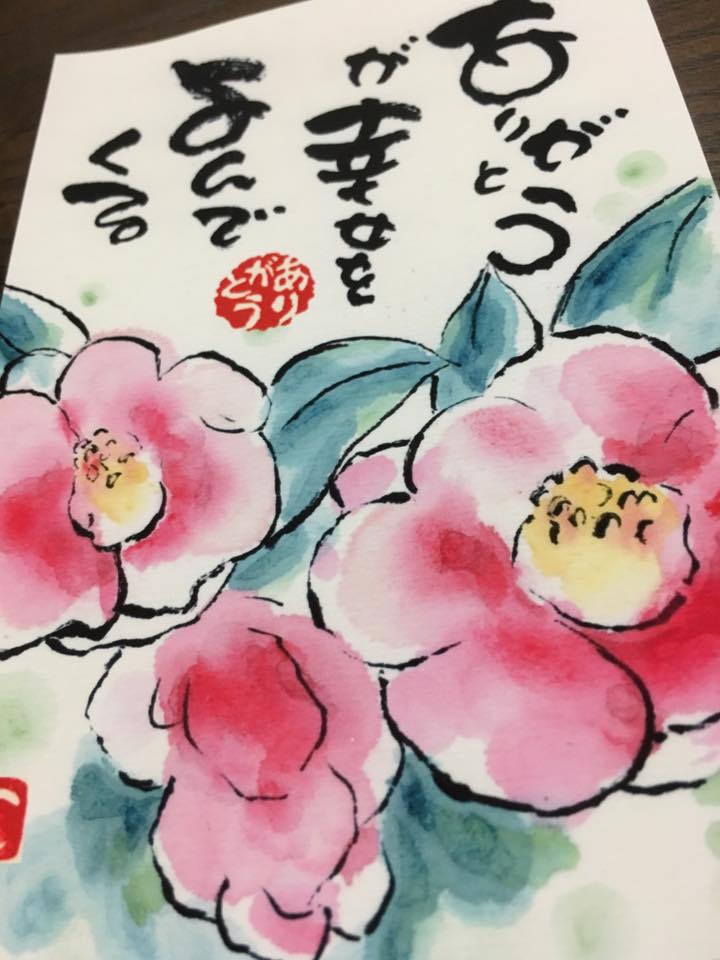 ありがとう
が幸せを
よんで
くる
あり
がとう